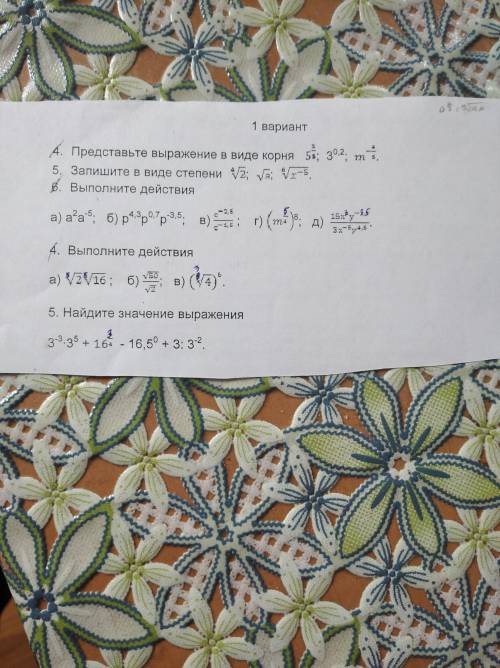 1 вариант
4. Представьте выражение в виде корня 5^{5/8}; 3^{0,2}; m^{-4/5}.
5. Запишите в виде степени ∜2; √a; \sqrt[8]{x^{-5}}.
6. Выполните действия
а) a²a⁻⁵; б) p^{4,3}p^{0,7}p^{-3,5}; в) ; г) ; д)
4. Выполните действия
а) ⁵√2⁵√16; б) √50/√2; в) (³√4)⁶.
5. Найдите значение выражения
3⁻³·3⁵ + 16 - 16,5⁰ + 3: 3⁻².